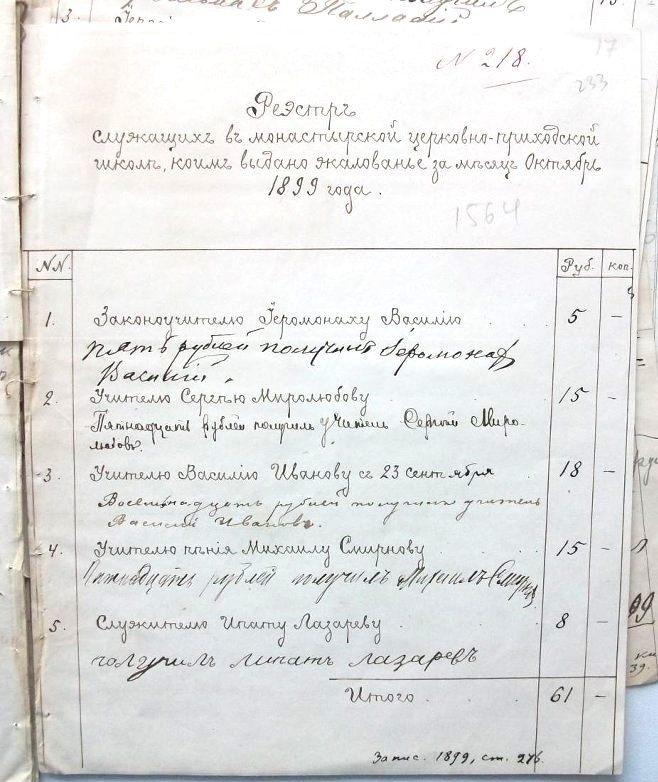 3.
N 218.
17
233
Реэстръ
служащихъ въ монастырской церковно-приходской
школѣ, коимъ выдано жалованье за мѣсяцъ Октябрь
1899 года.
1564
NN. Руб. коп.
1. Законоучителю Іеромонаху Василію 5 –
пять рублей получилъ Іеромонах
Василий.
2. Учителю Сергѣю Миролюбову 15 –
Пятнадцать рублей получилъ учитель Сергѣй Миро-
любовъ.
3. Учителю Василію Иванову съ 23 сентября 18 –
Восемьнадцать рублей получилъ учитель
Василій Ивановъ.
4. Учителю пѣнія Михаилу Смирнову 15 –
Пятнадцать рублей получилъ Михаилъ Смирнов
5. Служителю Ипату Лазареву 8 –
получилъ Липатъ Лазаревъ
Итого 61 –
Запис. 1899, ст. 276.